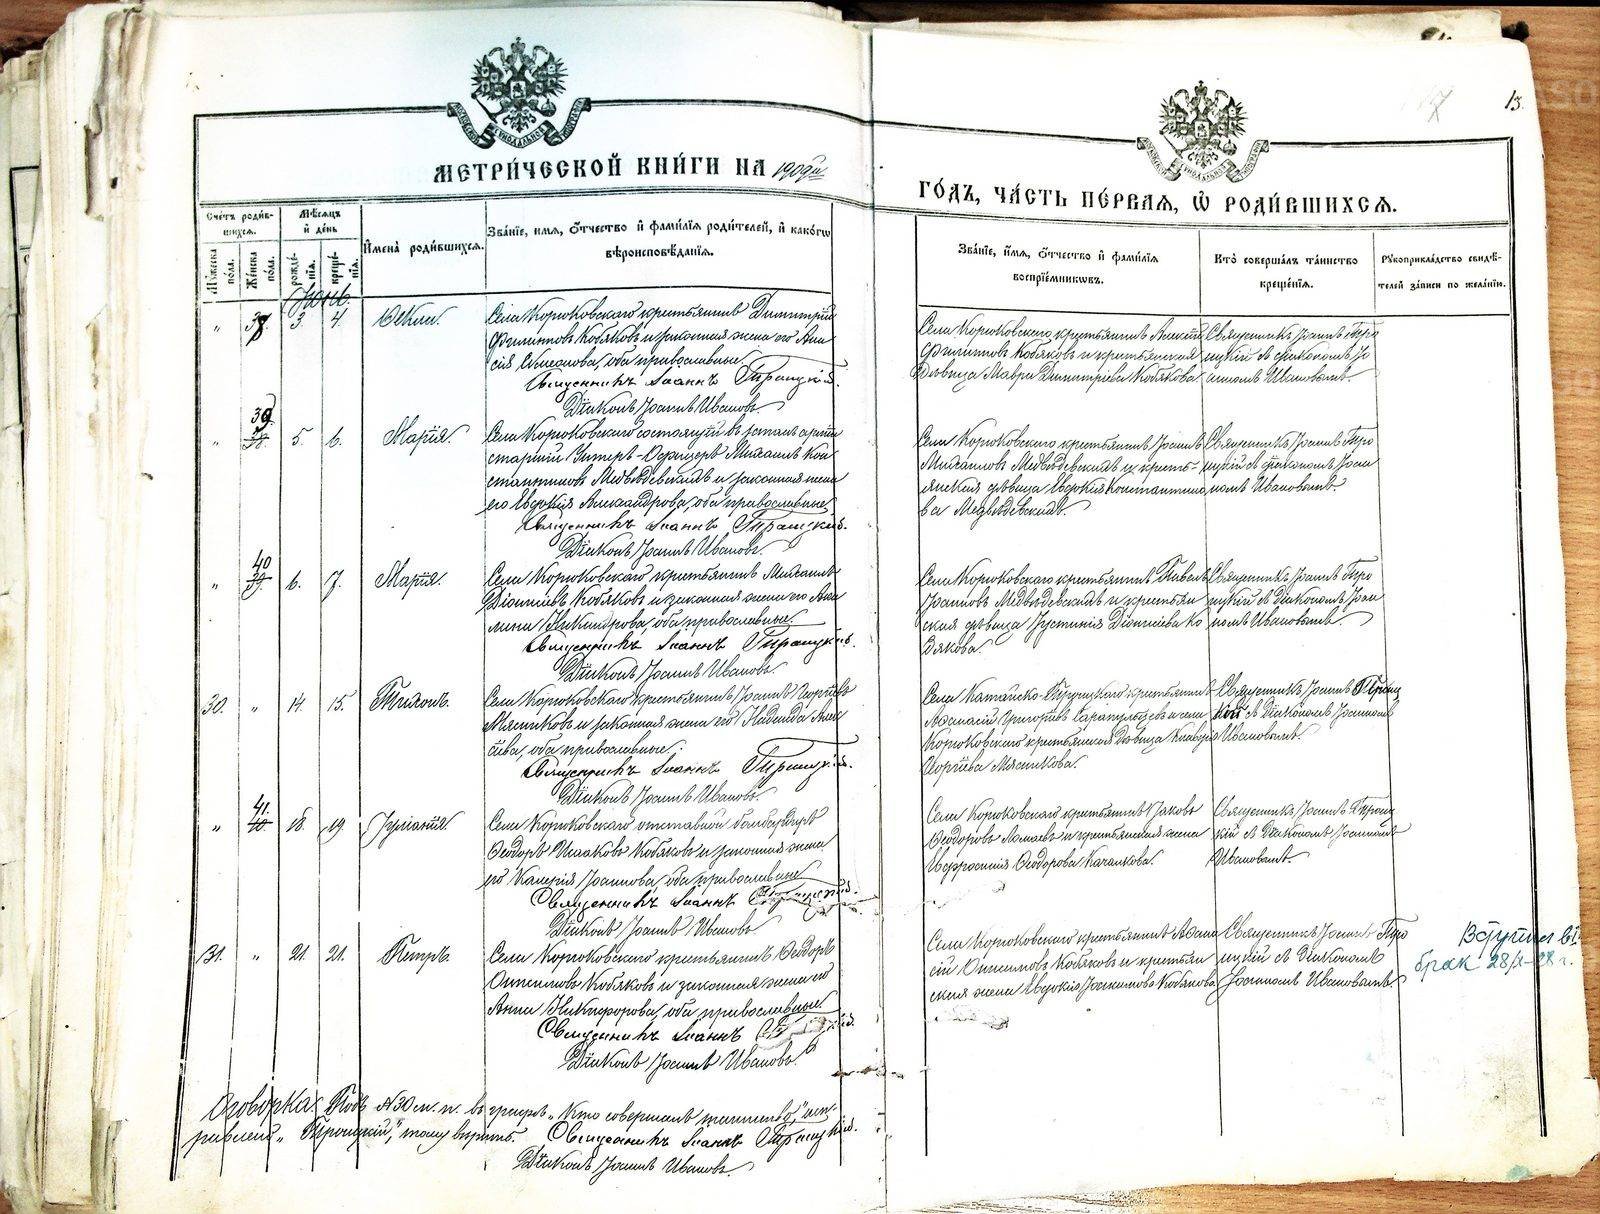 МЕТРИ́ЧЕСКОЙ КНИ́ГИ НА 1909й
ГО́ДЪ, ЧА́СТЬ ПЕ́РВАЯ, Ѡ РОДИ́ВШИХСЯ.
13.
Сче́тъ роди́в-
шихся.
Мѣ́сяцъ
и҆ де́нь
Мꙋ́жеска по́ла.
Же́нска по́ла.
рожде́-
нїя.
креще́-
нїя.
И҆мена̀ роди́вшихся.
Зва́нїе, и҆мя, ѻ҆́тчество и҆ фами́лїя роди́телей, и҆ како́гѡ
вѣроисповѣ́данїя.
Зва́нїе, и҆́мя, ѻ҆́тчество и҆ фами́лїя
воспрїе́мниковъ.
Кто̀ соверша́лъ та́инство
креще́нїя.
Рꙋкоприкла́дство свидѣ́-
телей за́писи по жела́нїю.
Іюнь.
" 38. 3. 4. Ѳекла.
Села Корюковскаго крестьянинъ Димитрій
Филиппов Кобяковъ и законная жена его
оба православные
Священникъ Іоаннъ Троицкій.
Діаконъ Іоаннъ Ивановъ.
Села Корюковскаго крестьянинъ Алексій
Филипповъ Кобяковъ и крестьянская
дѣвица Мавра Димитріева Кобякова
Священникъ Іоаннъ Тро
ицкій съ діакономъ Іо
анномъ Ивановымъ.
" 39. 38. 5. 6. Марія.
Села Корюковскаго состоящій въ запасѣ арміи
старшій Унтеръ-Офицеръ Михаилъ Кон
стантиновъ Медвѣдевскихъ и законная жена
его Евдокія Александрова, оба православные
Священникъ Іоаннъ Троицкій.
Діаконъ Іоаннъ Ивановъ.
Села Корюковскаго крестьянинъ Іоаннъ
Михаиловъ Медвѣдевскихъ и кресть-
янская дѣвица Евдокія Константино
ва Медвѣдевскихъ.
Священникъ Іоаннъ Тро
ицкій съ діакономъ Іоан
номъ Ивановымъ.
" 40 39. 6. 7. Марія.
Села Корюковскаго крестьянинъ Михаилъ
Діонисіевъ Кобяковъ и законная жена его
Никандрова, оба православные
Священникъ Іоаннъ Троицкій.
Діаконъ Іоаннъ Ивановъ.
Села Корюковскаго крестьянинъ Павелъ
Іоанновъ Медвѣдевскихъ и крестьян
ская дѣвица Іустинія Діонисіева Ко
бякова.
Священникъ Іоаннъ Тро
ицкій съ Діакономъ Іоан
номъ Ивановымъ
30. " 14. 15. Тихонъ.
Села Корюковскаго крестьянинъ Іоаннъ Георгіевъ
Мясниковъ и законная жена его Надежда Алек
сіева, оба православные.
Священникъ Іоаннъ Троицкій.
Діаконъ Іоаннъ Ивановъ.
Села крестьянинъ
Аѳанасій Григорьевъ Сарапульцевъ и села
Корюковскаго крестьянская дѣвица Клавдія
Георгіева Мясникова.
Священникъ Іоаннъ Троиц
кій съ Діакономъ Іоанномъ
Ивановымъ.
" 41. 40. 18. 19 Іуліанія.
Села Корюковскаго отставной бомбардиръ
Ѳеодоръ Исааковъ Кобяковъ и законная жена
его Валерія Іоаннова, оба православные
Священникъ Іоаннъ Троицкій.
Діаконъ Іоаннъ Ивановъ
Села Корюковскаго крестьянинъ Іаковъ
Ѳеодоровъ и крестьянская жена
Евфросинія Ѳеодорова Качалкова.
Священникъ Іоаннъ Троиц
кій съ Діакономъ Іоанномъ
Ивановымъ.
31. " 21. 21. Петръ.
Села Корюковскаго крестьянинъ Ѳеодоръ
Кобяковъ и законная жена его
Анна Никифорова, оба православные
Священникъ Іоаннъ
Діаконъ Іоаннъ Ивановъ
Села Корюковскаго крестьянинъ Аѳана
сій Кобяковъ и крестьян
ская жена Евдокія Іоакимова Кобякова
Священникъ Іоаннъ Тро
ицкій съ Діакономъ
Іоанномъ Ивановымъ
Вступил в I
брак 28/I-28 г.
Оговорка: Подъ №30 м. п. въ графѣ "Кто совершалъ таинство", исп-
равлено "Троицкій", тому вѣрить. Священникъ Іоаннъ Троицкій.
Діаконъ Іоаннъ Ивановъ.